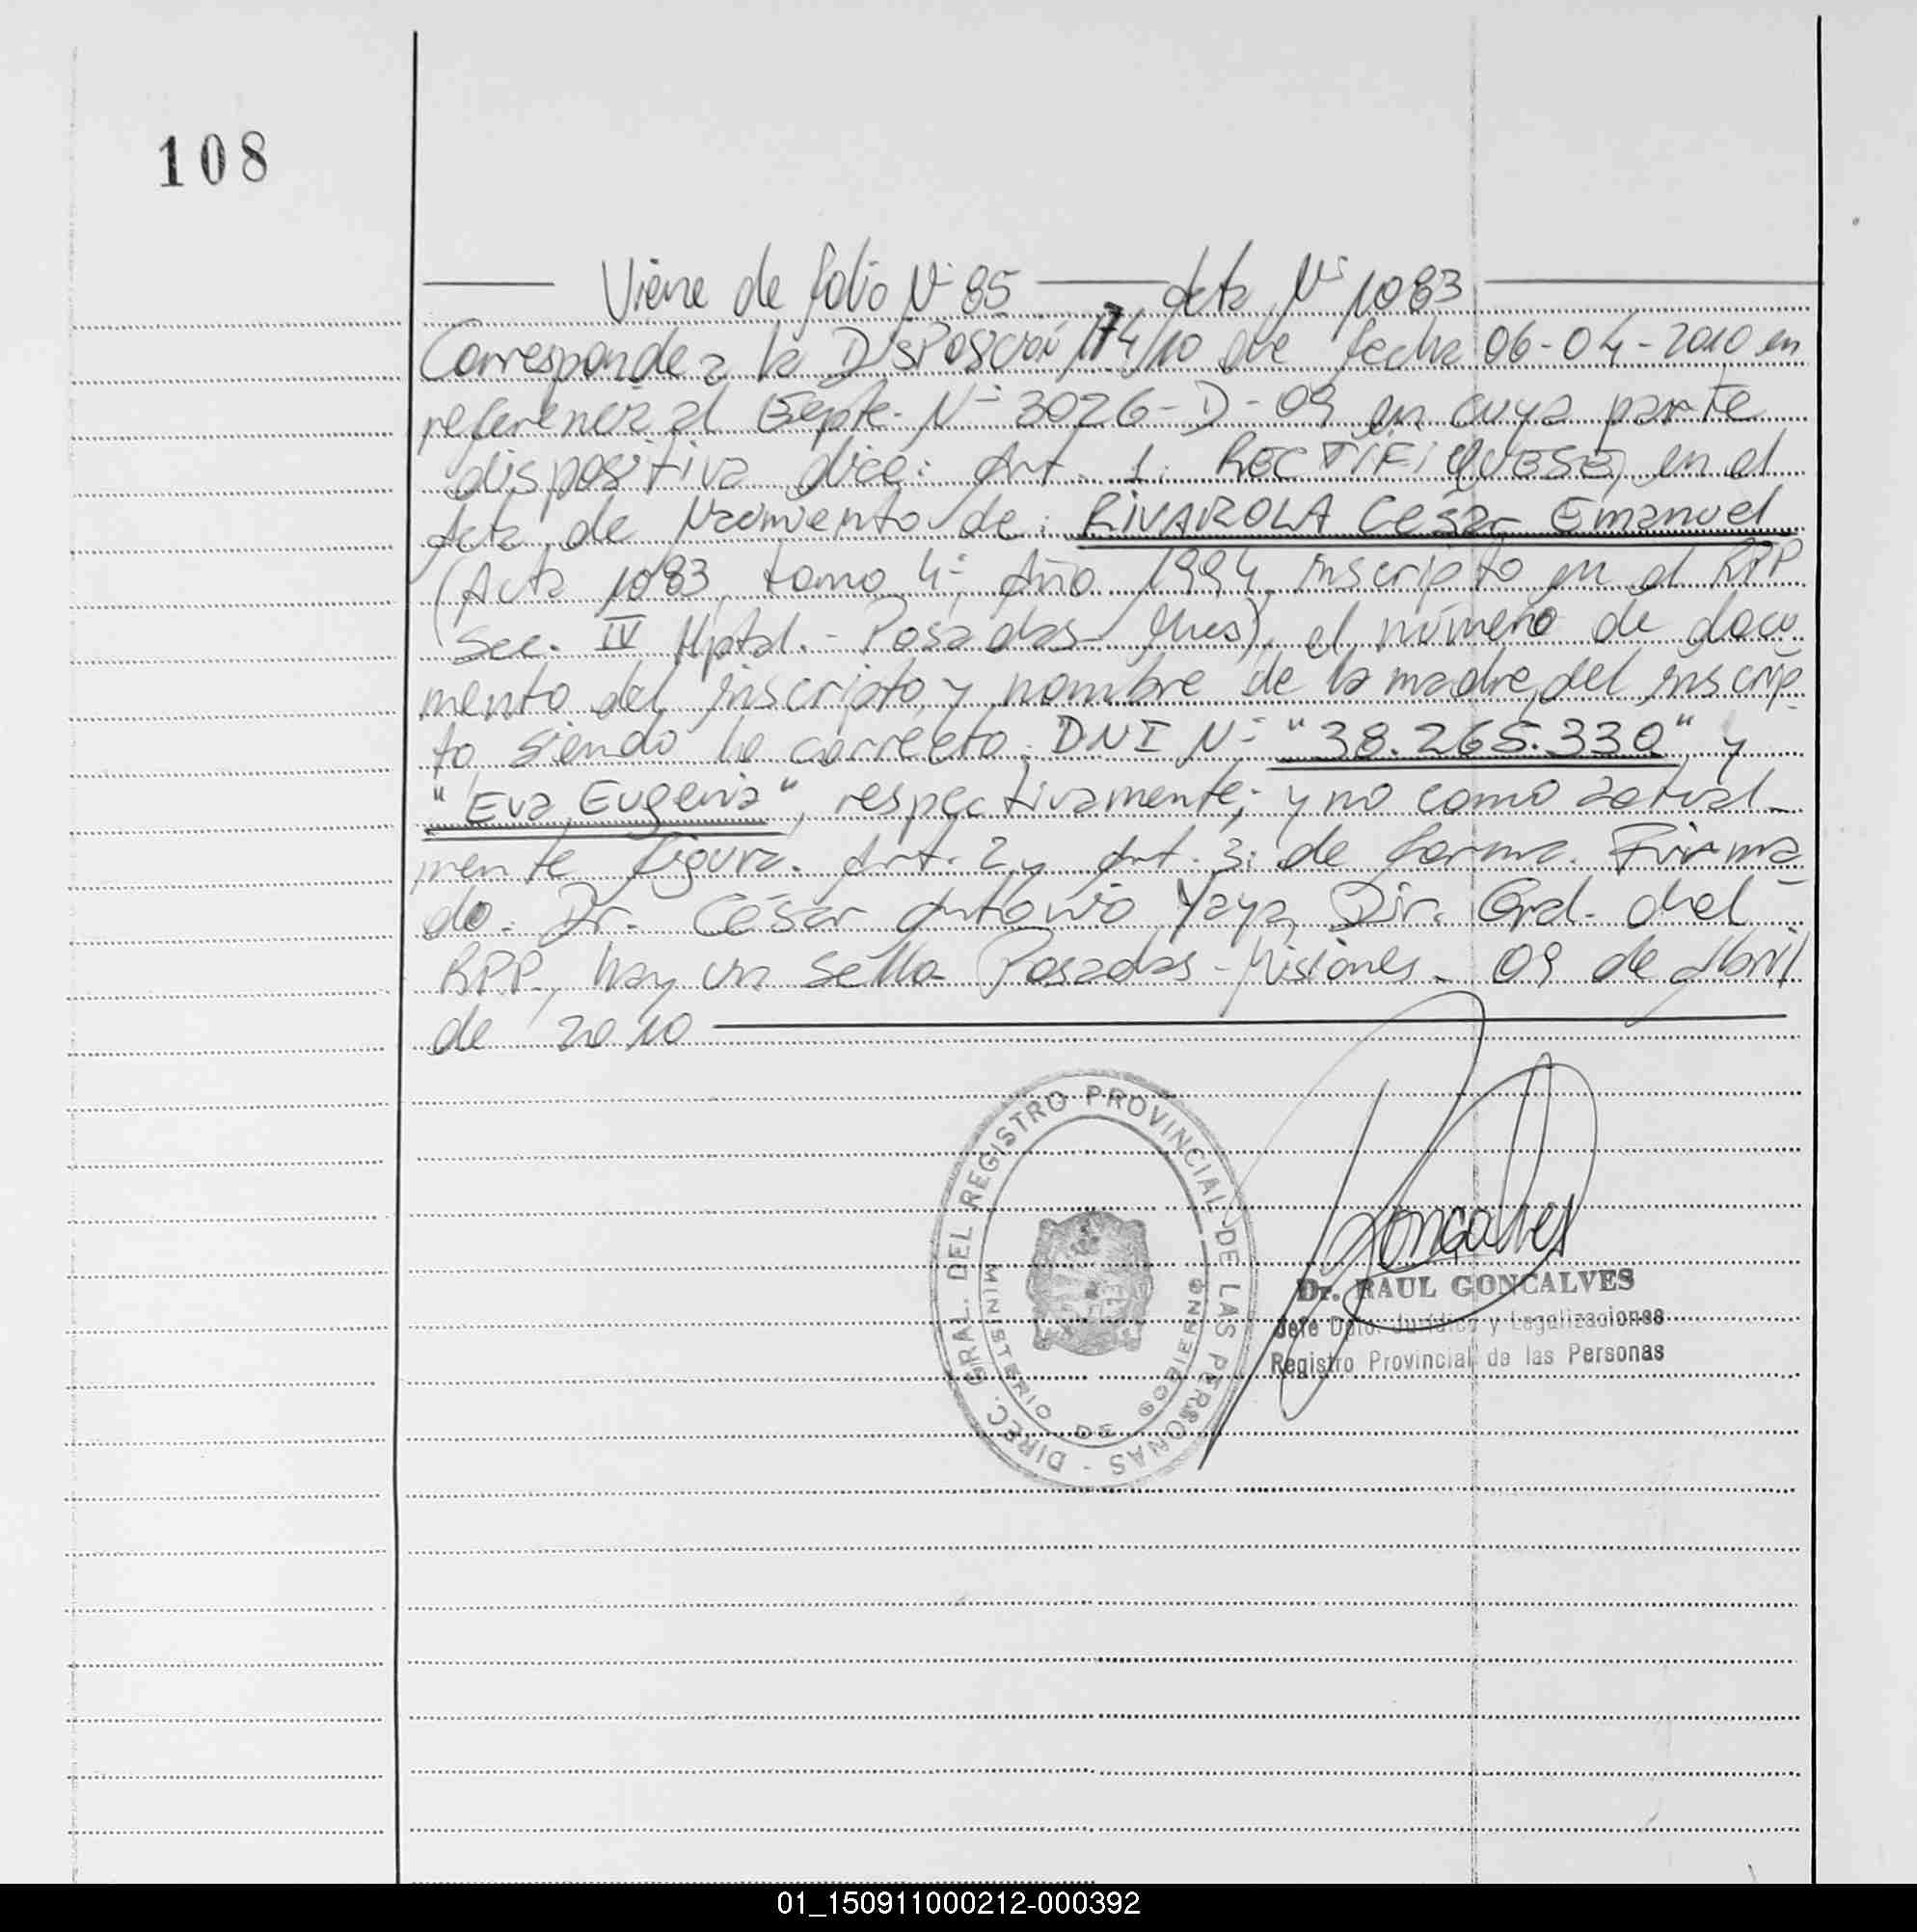 108
Viene de folio Nº 85 — Acta Nº 1083
Corresponde a la Disposición 174/10 de fecha 06-04-2010 en
referencia al Expte. Nº 3026-D-09 en cuya parte
dispositiva dice: Art. 1: RECTIFIQUESE, en el
Acta de Nacimiento de: RIVAROLA César Emanuel
(Acta 1083, tomo 4º, Año 1994, inscripto en el RPP
Sec. IV Hptal. - Posadas - Mnes), el número de docu
mento del inscripto y nombre de la madre del inscrip-
to siendo lo correcto: DNI Nº "38.265.330" y
"Eva Eugenia", respectivamente; y no como actual-
mente figura. Art. 2 y Art. 3: de forma. Firma-
do: Dr. César Antonio Yaya, Dir. Gral. del
RPP, hay un sello Posadas - Misiones - 09 de Abril
de 2010
DIREC. GRAL. DEL REGISTRO PROVINCIAL DE LAS PERSONAS -
MINISTERIO DE GOBIERNO
Goncalves
Dr. RAUL GONCALVES
Jefe Dpto. Jurídico y Legalizaciones
Registro Provincial de las Personas
01_150911000212-000392